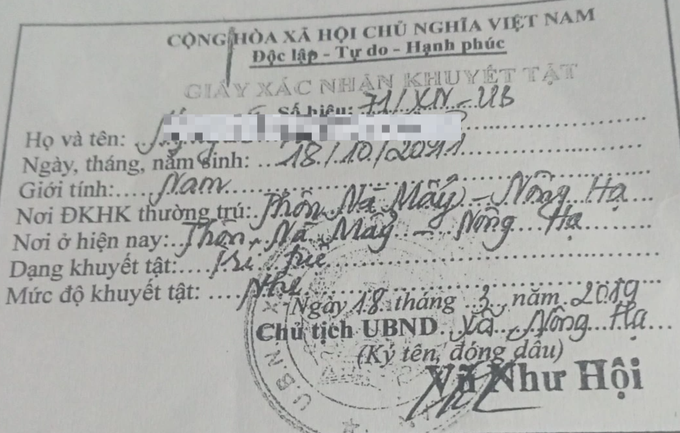 CỘNG HÒA XÃ HỘI CHỦ NGHĨA VIỆT NAM
Độc lập - Tự do - Hạnh phúc
GIẤY XÁC NHẬN KHUYẾT TẬT
Số hiệu: 71/XN-UB
Họ và tên:
Ngày, tháng, năm sinh: 18/10/2011
Giới tính: Nam
Nơi ĐKHK thường trú: Thôn Nà Mẩy - Nông Hạ
Nơi ở hiện nay: Thôn Nà Mẩy - Nông Hạ
Dạng khuyết tật: Trí tuệ
Mức độ khuyết tật: Nhẹ
Ngày 18 tháng 3 năm 2019
Chủ tịch UBND Xã Nông Hạ
(Ký tên, đóng dấu)
Vũ Như Hội